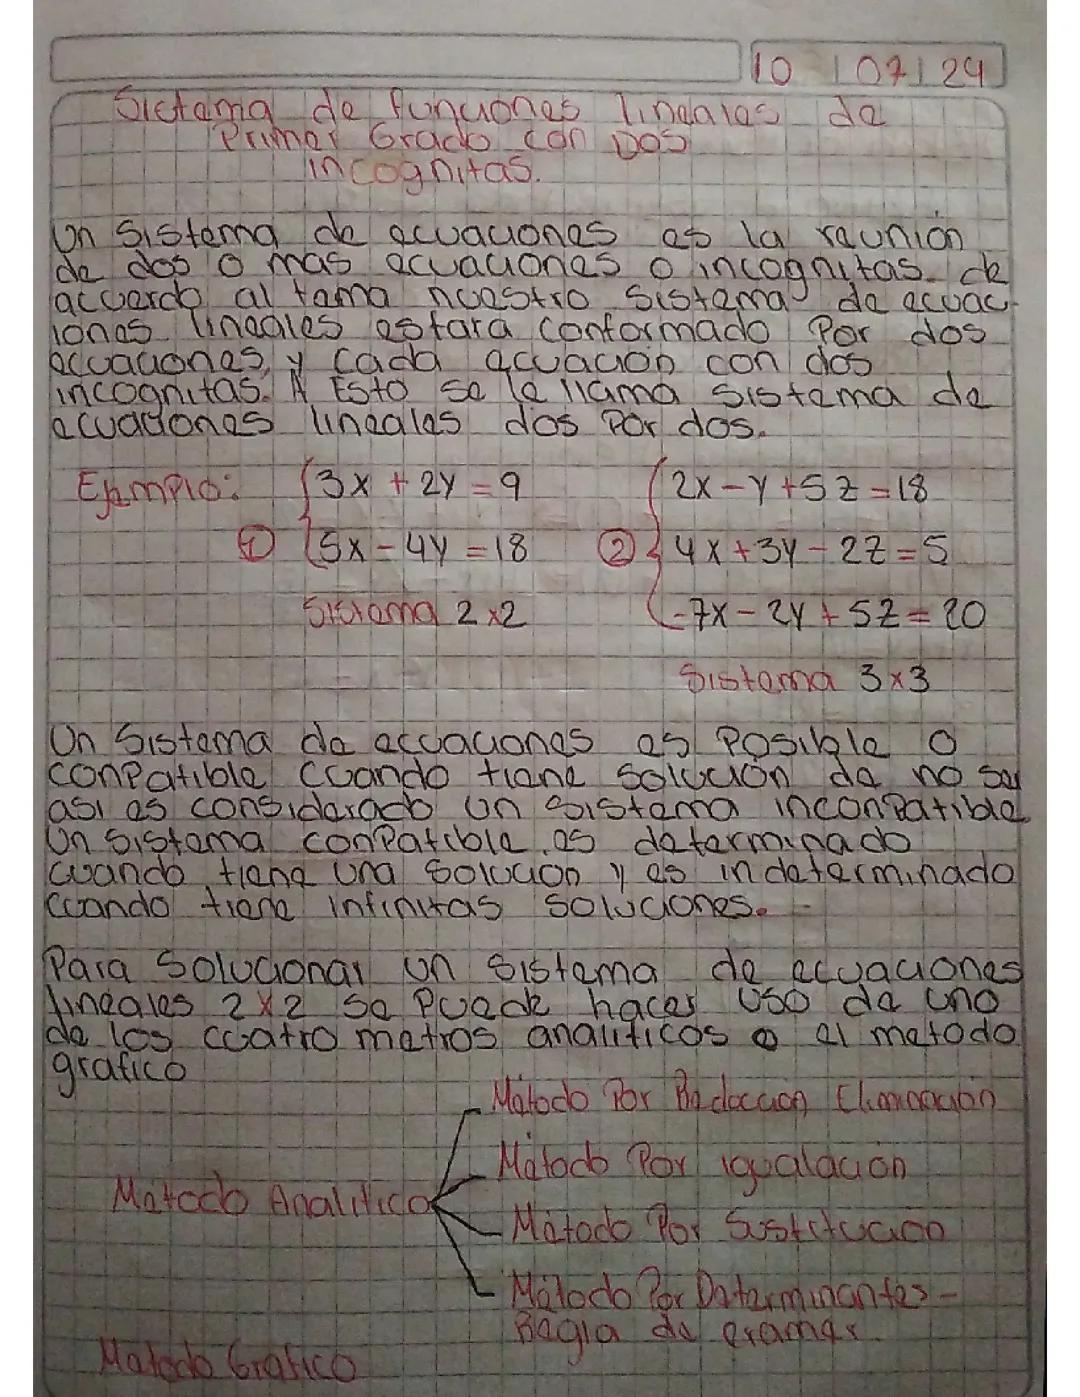 10 | 07 | 24
Sistema de funciones lineales de
Primer Grado con Dos
incognitas.
Un Sistema de ecuaciones es la reunión
de dos o mas ecuaciones o incognitas. de
acuerdo al tema nuestro Sistema de ecuac-
iones lineales estara conformado Por dos
ecuaciones, y cada ecuación con dos
incognitas. A Esto se le llama sistema de
ecuaciones lineales dos Por dos.
Ejemplo: 3x + 2y = 9 2x - y + 5z = 18
① 5x - 4y = 18 ② 4x + 3y - 2z = 5
Sistema 2x2 -7x - 2y + 5z = 20
Sistema 3x3
Un Sistema de ecuaciones es Posible o
conpatible cuando tiene solución de no ser
asi es considerado un sistema inconpatible
Un sistema conpatible es determinado
cuando tiene una solución y es indeterminado
cuando tiene infinitas soluciones.
Para Solucionar un sistema de ecuaciones
lineales 2x2 se Puede hacer uso de uno
de los cuatro metros analiticos o el metodo
grafico
Método Por Reducción Eliminación
Método Por igualación
Metodo Analitico
Método Por Sustitución
Método Por Determinantes-
Regla de cramer.
Metodo Grafico